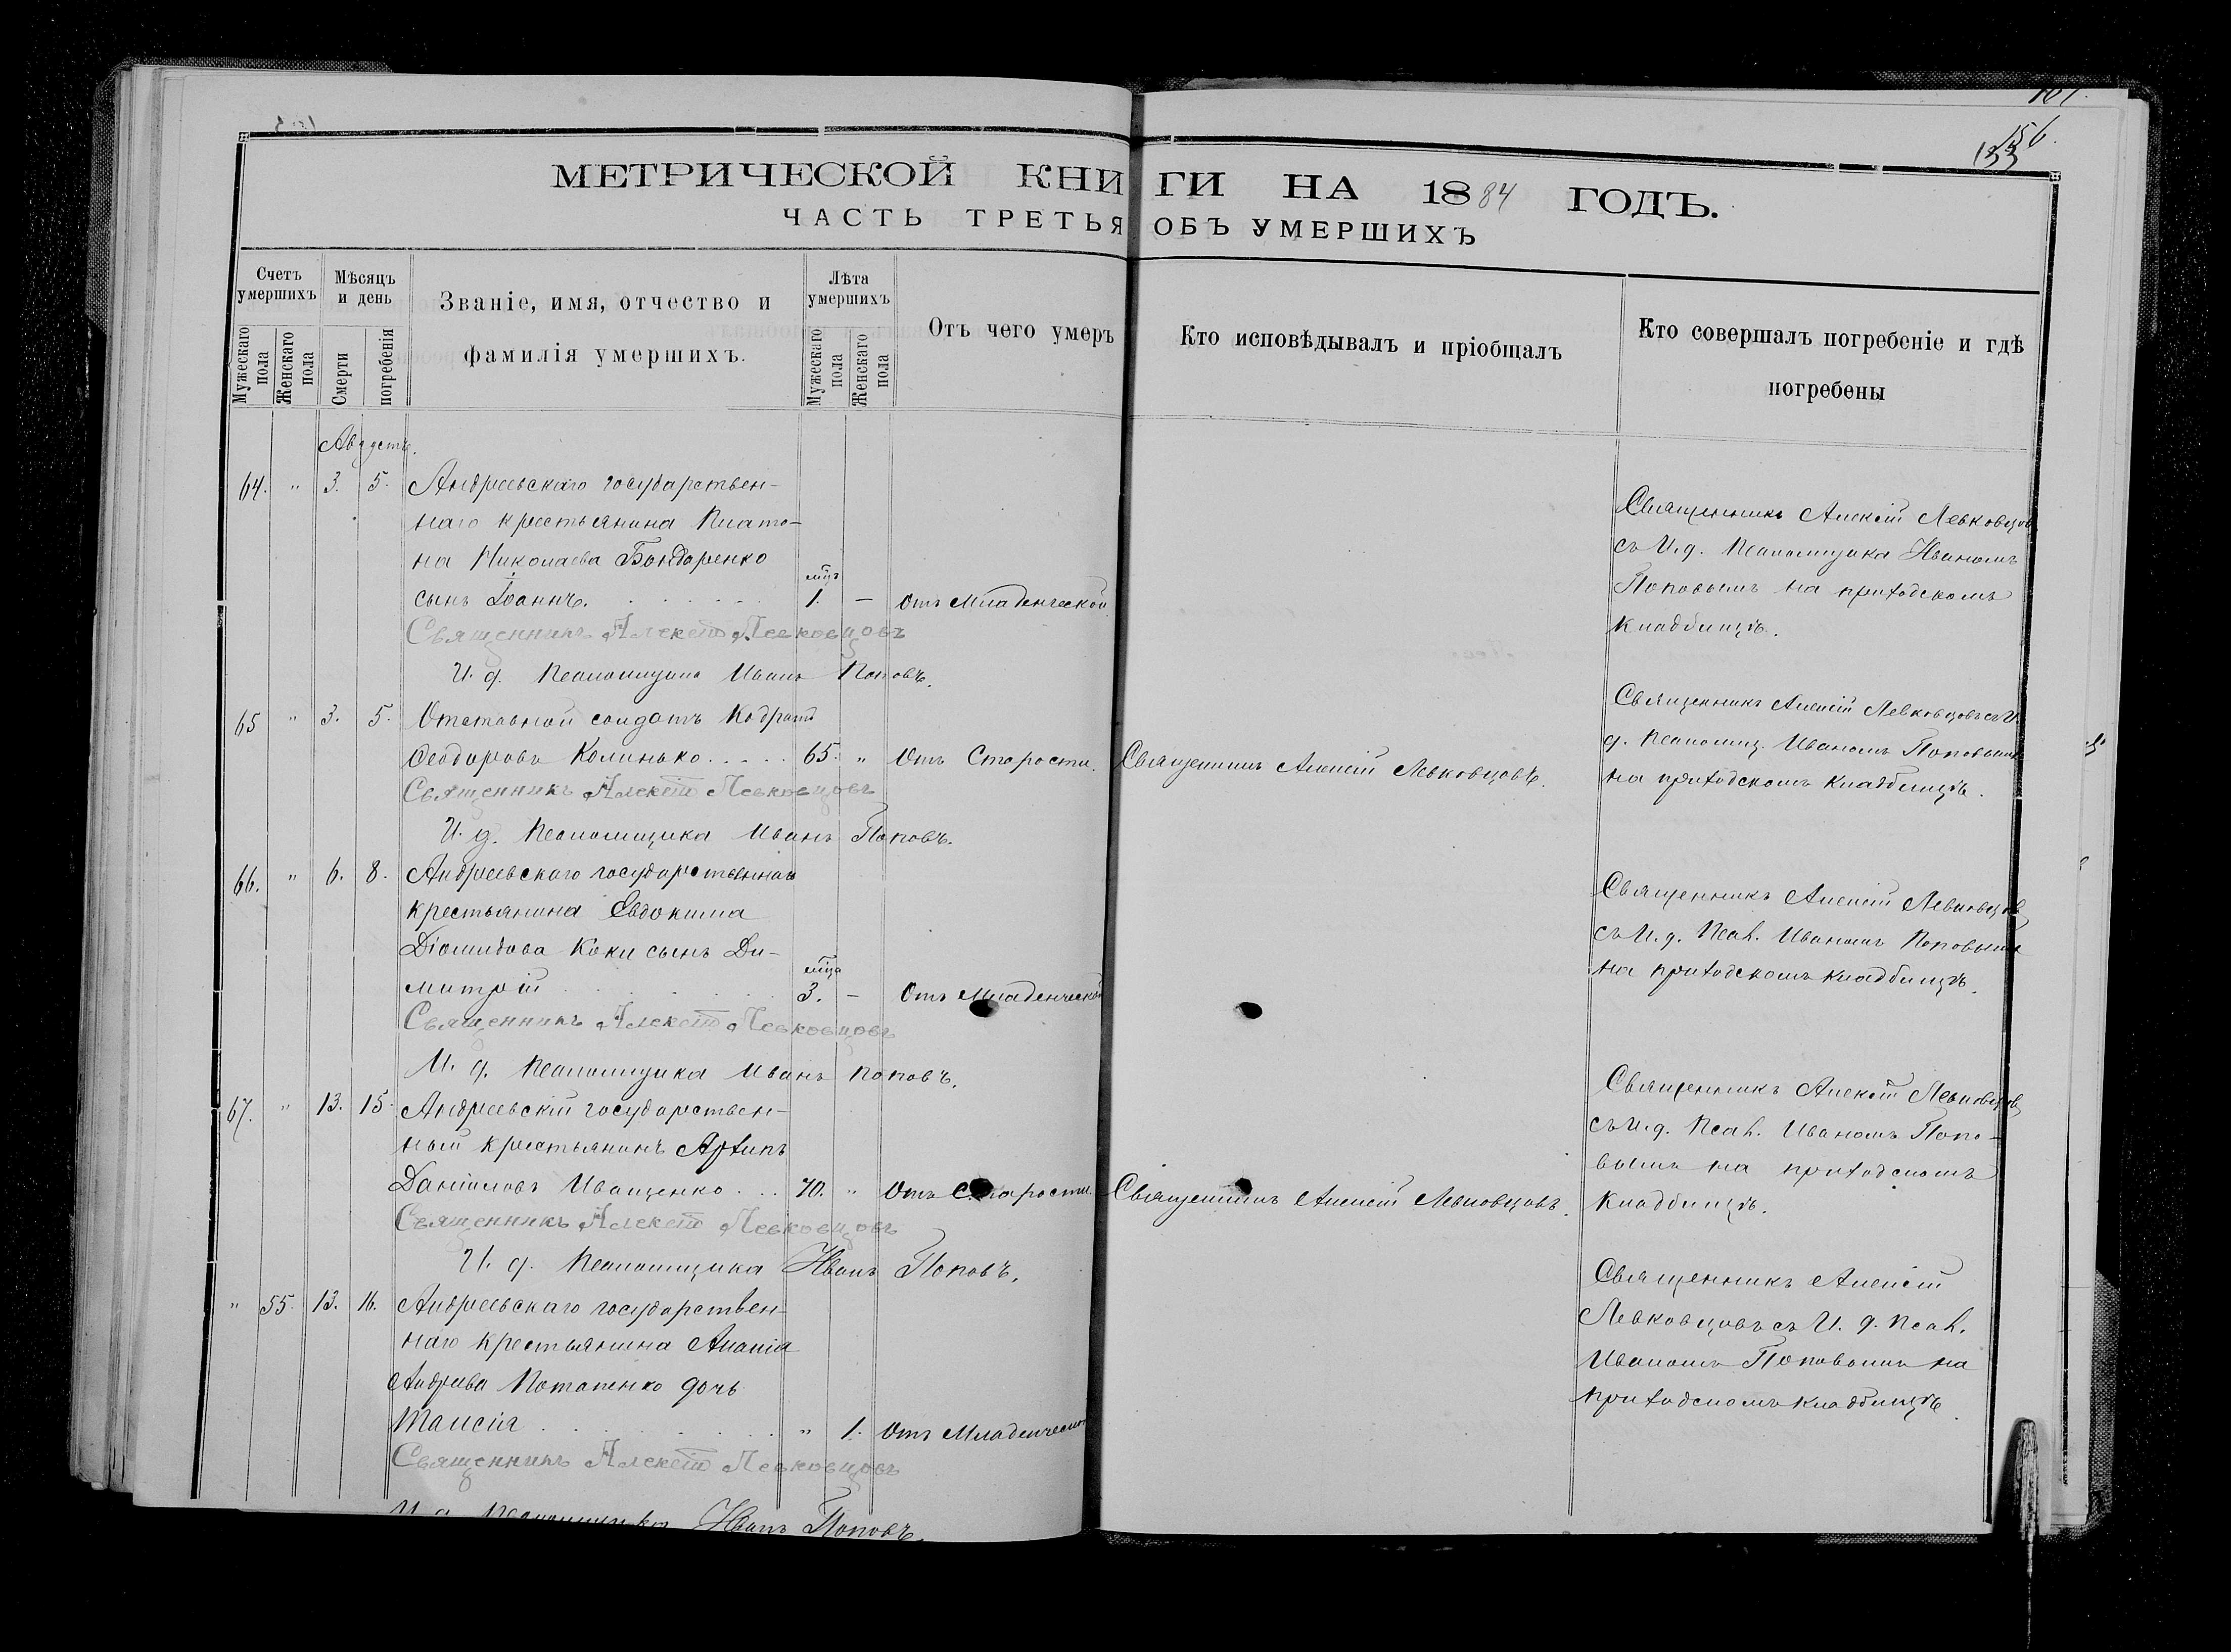 156
133
МЕТРИЧЕСКОЙ КНИГИ НА 1884 ГОДЪ.
ЧАСТЬ ТРЕТЬЯ ОБЪ УМЕРШИХЪ
Счетъ умершихъ
Мужескаго пола
Женскаго пола
Мѣсяцъ и день
Смерти
погребенія
Званіе, имя, отчество и
фамилія умершихъ.
Лѣта умершихъ
Мужескаго пола
Женскаго пола
Отъ чего умеръ
Кто исповѣдывалъ и пріобщалъ
Кто совершалъ погребеніе и гдѣ
погребены
Августъ.
64. " 3. 5. Андреевскаго государствен-
наго крестьянина Плато-
на Николаева Бондаренко
мцъ
сынъ Іоаннъ. 1. — Отъ младенческой
Священникъ Алексій Левковцов
съ И. д. Псаломщика Иваномъ
Поповымъ на приходскомъ
кладбищѣ.
Священникъ Алексій Левковцовъ
И. д. Псаломщика Иванъ Поповъ.
65 " 3. 5. Отставной солдатъ Кодратъ
Феодоровъ Колинько 65. " Отъ Старости. Священникъ Алексій Левковцовъ.
Священникъ Алексій Левковцовъ съ И.
д. Псаломщ. Иваномъ Поповымъ
на приходскомъ кладбищѣ.
Священникъ Алексій Левковцовъ
И. д. Псаломщика Иванъ Поповъ.
66. " 6. 8. Андреевскаго государственнаго
крестьянина Евдокима
Діомидова Коки сынъ Ди-
мца
митрій 3. — Отъ Младенческой
Священникъ Алексій Левковцов
съ И. д. Псал. Иваномъ Поповымъ
на приходскомъ кладбищѣ.
Священникъ Алексій Левковцовъ
И. д. Псаломщика Иванъ Поповъ.
67. " 13. 15. Андреевскій государствен-
ный крестьянинъ Архипъ
Даніиловъ Иващенко 70. " Отъ Старости. Священникъ Алексій Левковцовъ.
Священникъ Алексій Левковцов
съ И. д. Псал. Иваномъ Попо-
вымъ на приходскомъ
кладбищѣ.
Священникъ Алексій Левковцовъ
И. д. Псаломщика Иванъ Поповъ.
" 55. 13. 16. Андреевскаго государствен-
наго крестьянина Ананія
Андреева Потапенко дочь
Таисія " 1. Отъ Младенческой
Священникъ Алексій
Левковцовъ съ И. д. Псал.
Иваномъ Поповымъ на
приходскомъ кладбищѣ.
Священникъ Алексій Левковцовъ
И. д. Псаломщика Иванъ Поповъ.